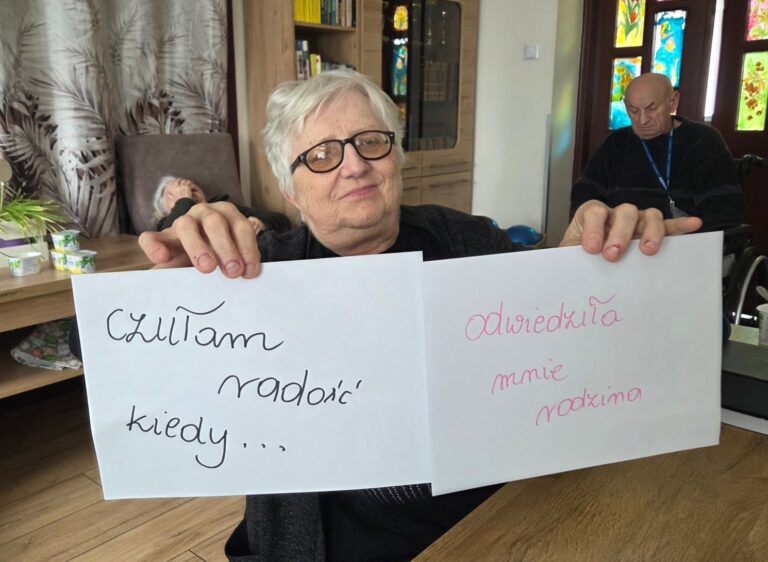 czułam
radość
kiedy...
odwiedziła
mnie
rodzina